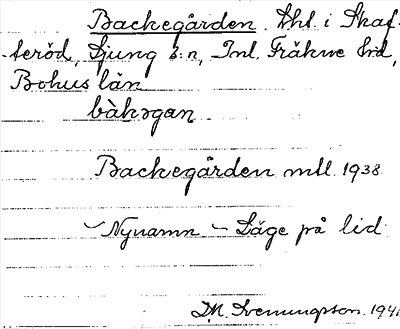 Backegården. Lht i Skaf-
teröd, Ljung s:n, Inl. Fräkne hd,
Bohus län
bàkəgan
Backegården mtl. 1938
Nynamn – Läge på lid
M. Svenungsson. 194